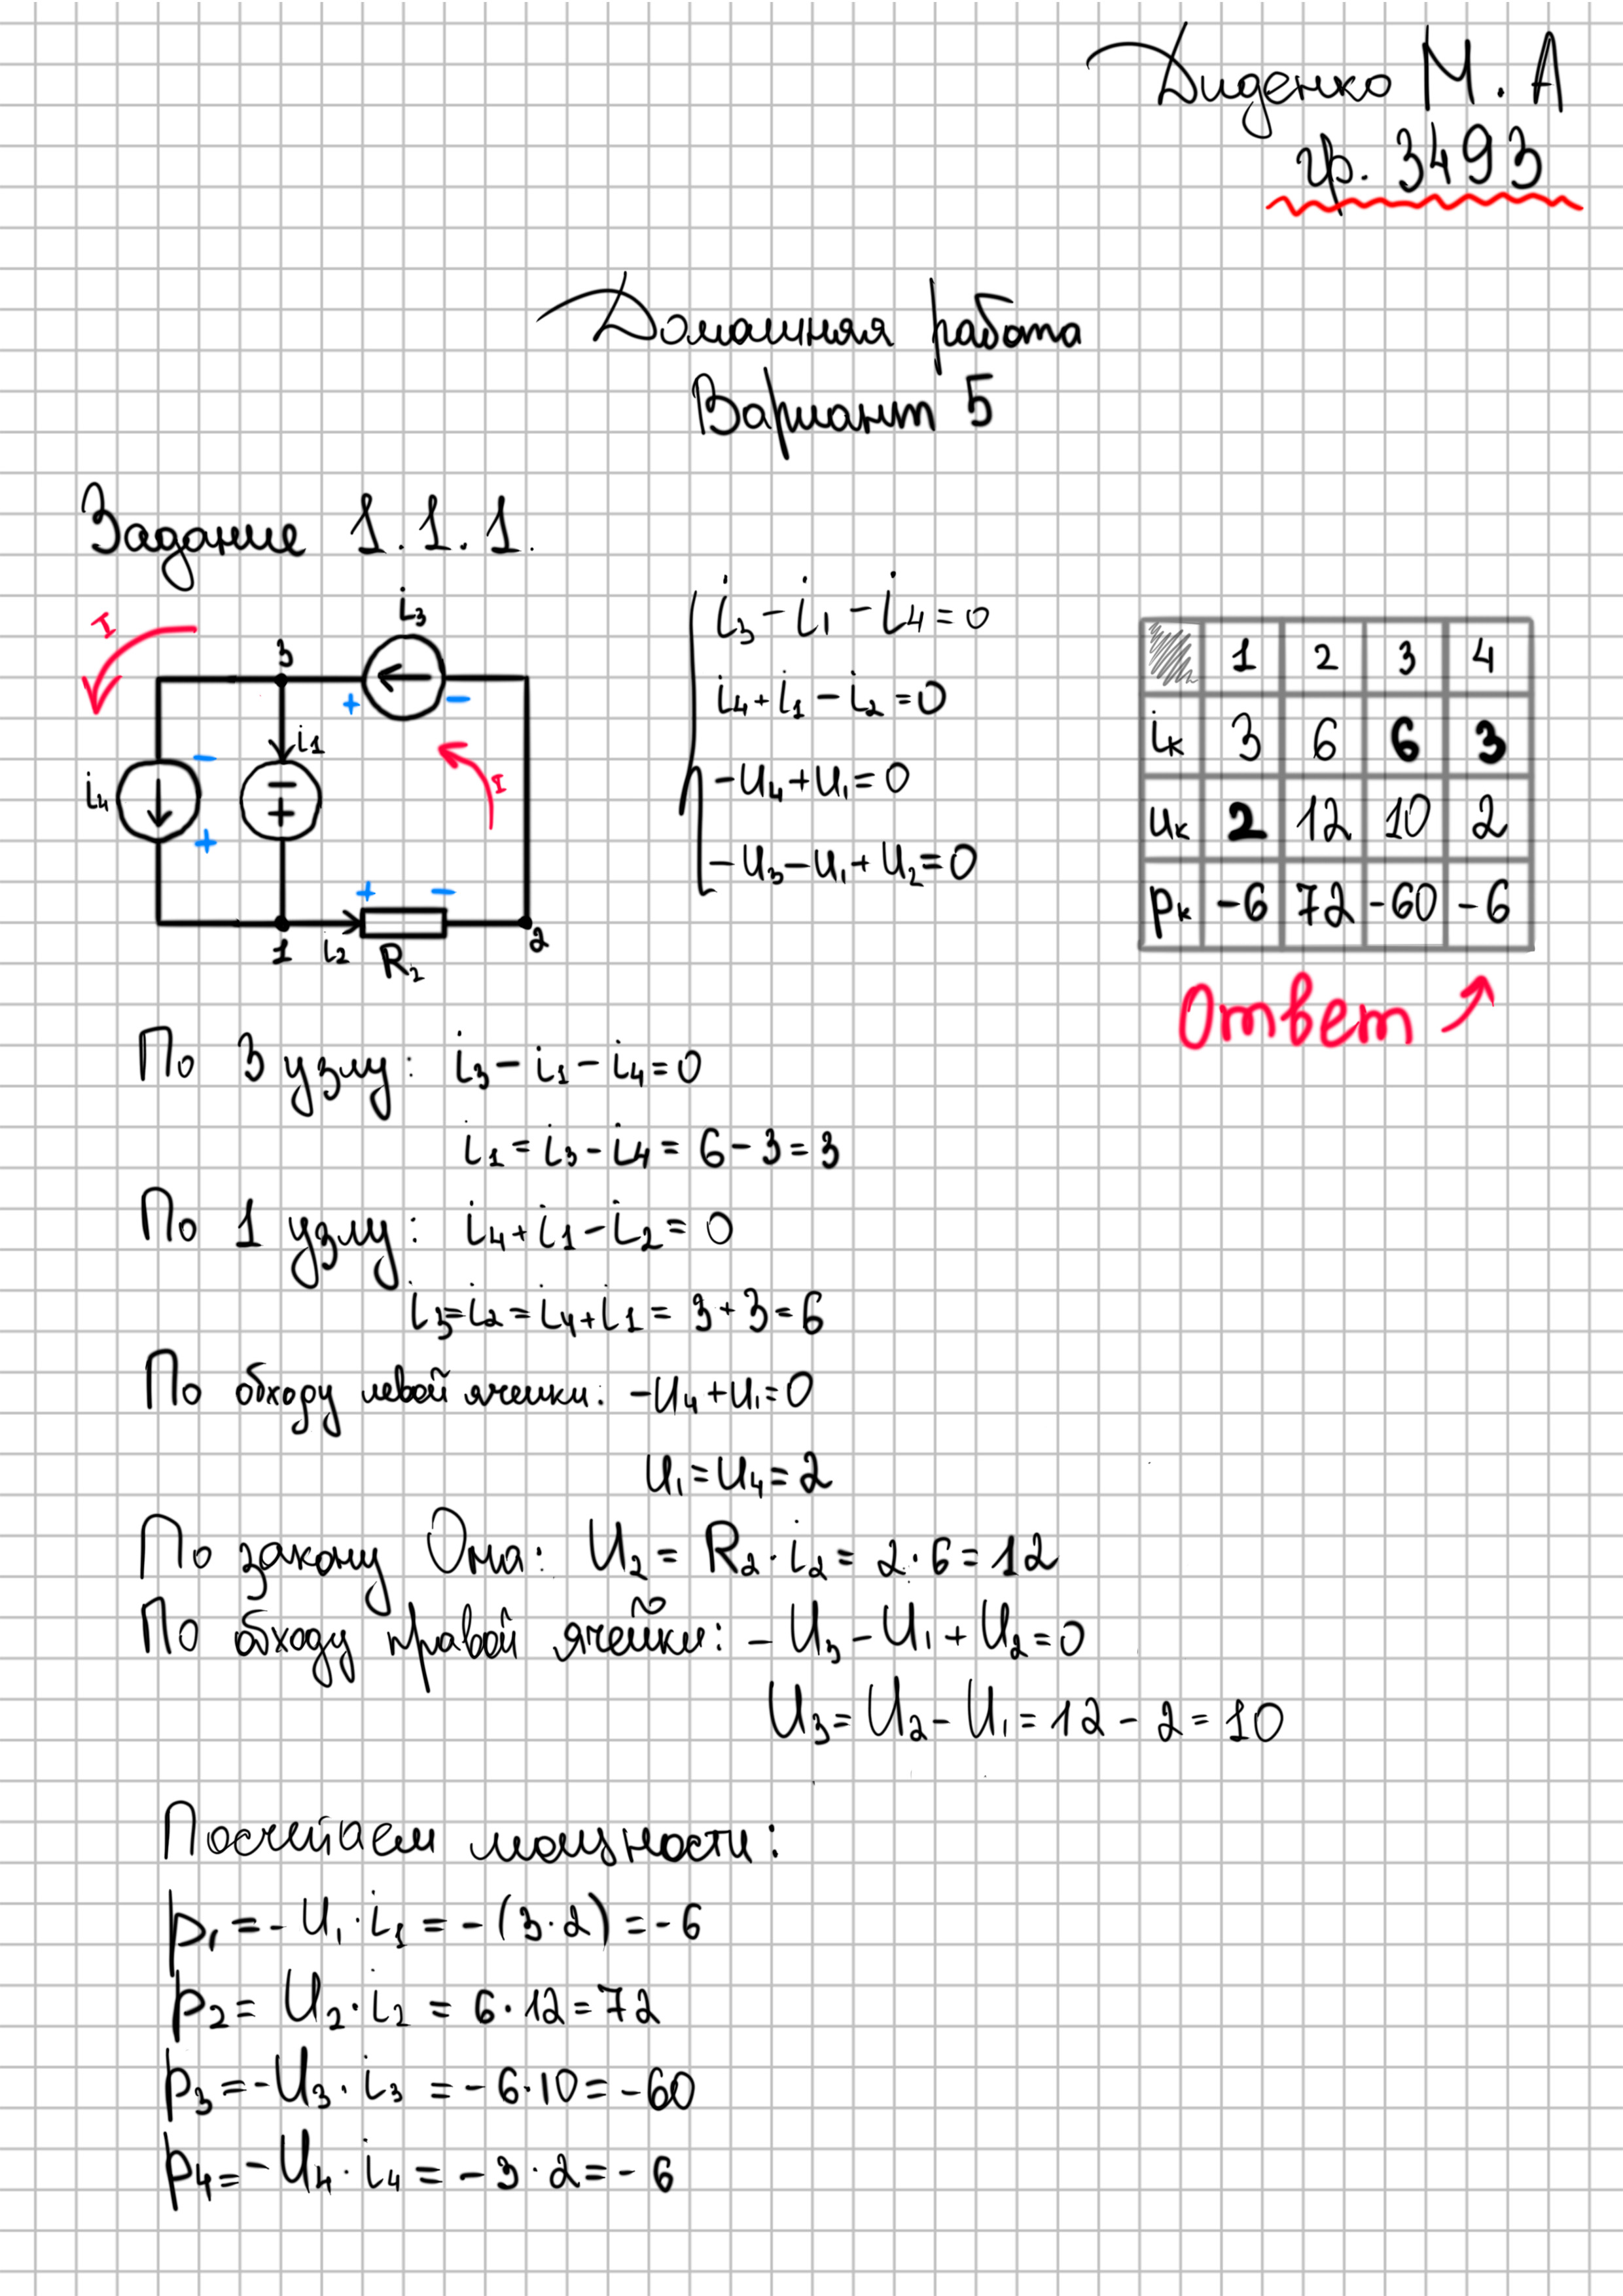 Диденко М. А
гр. 3493
Домашняя работа
Вариант 5
Задание 1.1.1.
I
i3
3
+ -
i1
- +
i4
- +
I
+ -
1
i2
R2
2
i3 - i1 - i4 = 0
i4 + i1 - i2 = 0
-U4 + U1 = 0
-U3 - U1 + U2 = 0
1 2 3 4
iк 3 6 6 3
uк 2 12 10 2
pк -6 72 -60 -6
Ответ
По 3 узлу: i3 - i1 - i4 = 0
i1 = i3 - i4 = 6 - 3 = 3
По 1 узлу: i4 + i1 - i2 = 0
i3 = i2 = i4 + i1 = 3 + 3 = 6
По обходу левой ячейки: -U4 + U1 = 0
U1 = U4 = 2
По закону Ома: U2 = R2 · i2 = 2 · 6 = 12
По обходу правой ячейки: - U3 - U1 + U2 = 0
U3 = U2 - U1 = 12 - 2 = 10
Посчитаем мощности:
p1 = - U1 · i1 = - (3 · 2) = -6
p2 = U2 · i2 = 6 · 12 = 72
p3 = -U3 · i3 = - 6 · 10 = -60
p4 = -U4 · i4 = - 3 · 2 = - 6